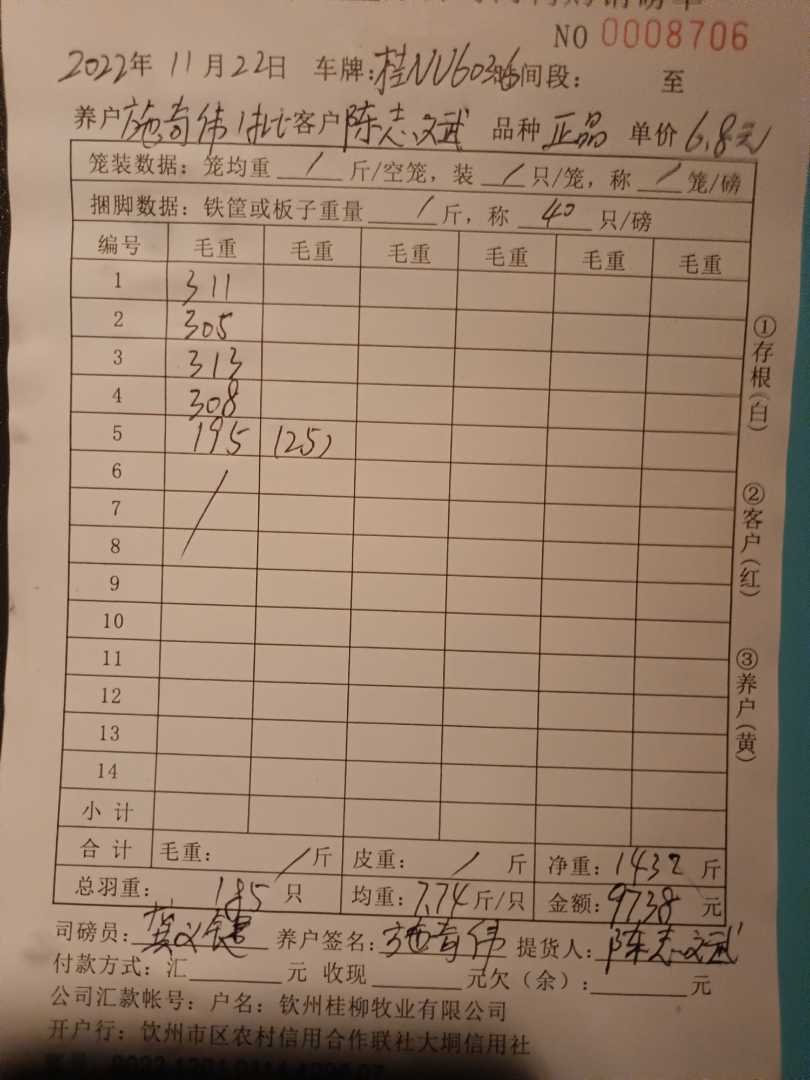 NO 0008706
2022年 11月22日 车牌:桂NU6036 时间段: 至
养户 施奇伟1批 客户 陈志斌 品种 正品 单价 6.8元
笼装数据: 笼均重 / 斤/空笼, 装 / 只/笼, 称 / 笼/磅
捆脚数据: 铁筐或板子重量 / 斤, 称 40 只/磅
编号 毛重 毛重 毛重 毛重 毛重 毛重
1 311
2 305
3 313
4 308
5 195 (25)
6 /
7
8
9
10
11
12
13
14
小 计
合 计 毛重: / 斤 皮重: / 斤 净重: 1432 斤
总羽重: 185 只 均重: 7.74 斤/只 金额: 9738 元
司磅员: 养户签名: 施奇伟 提货人: 陈志斌
付款方式: 汇 元 收现 元欠(余): 元
公司汇款帐号: 户名: 钦州桂柳牧业有限公司
开户行: 钦州市区农村信用合作联社大垌信用社
①存根(白)
②客户(红)
③养户(黄)